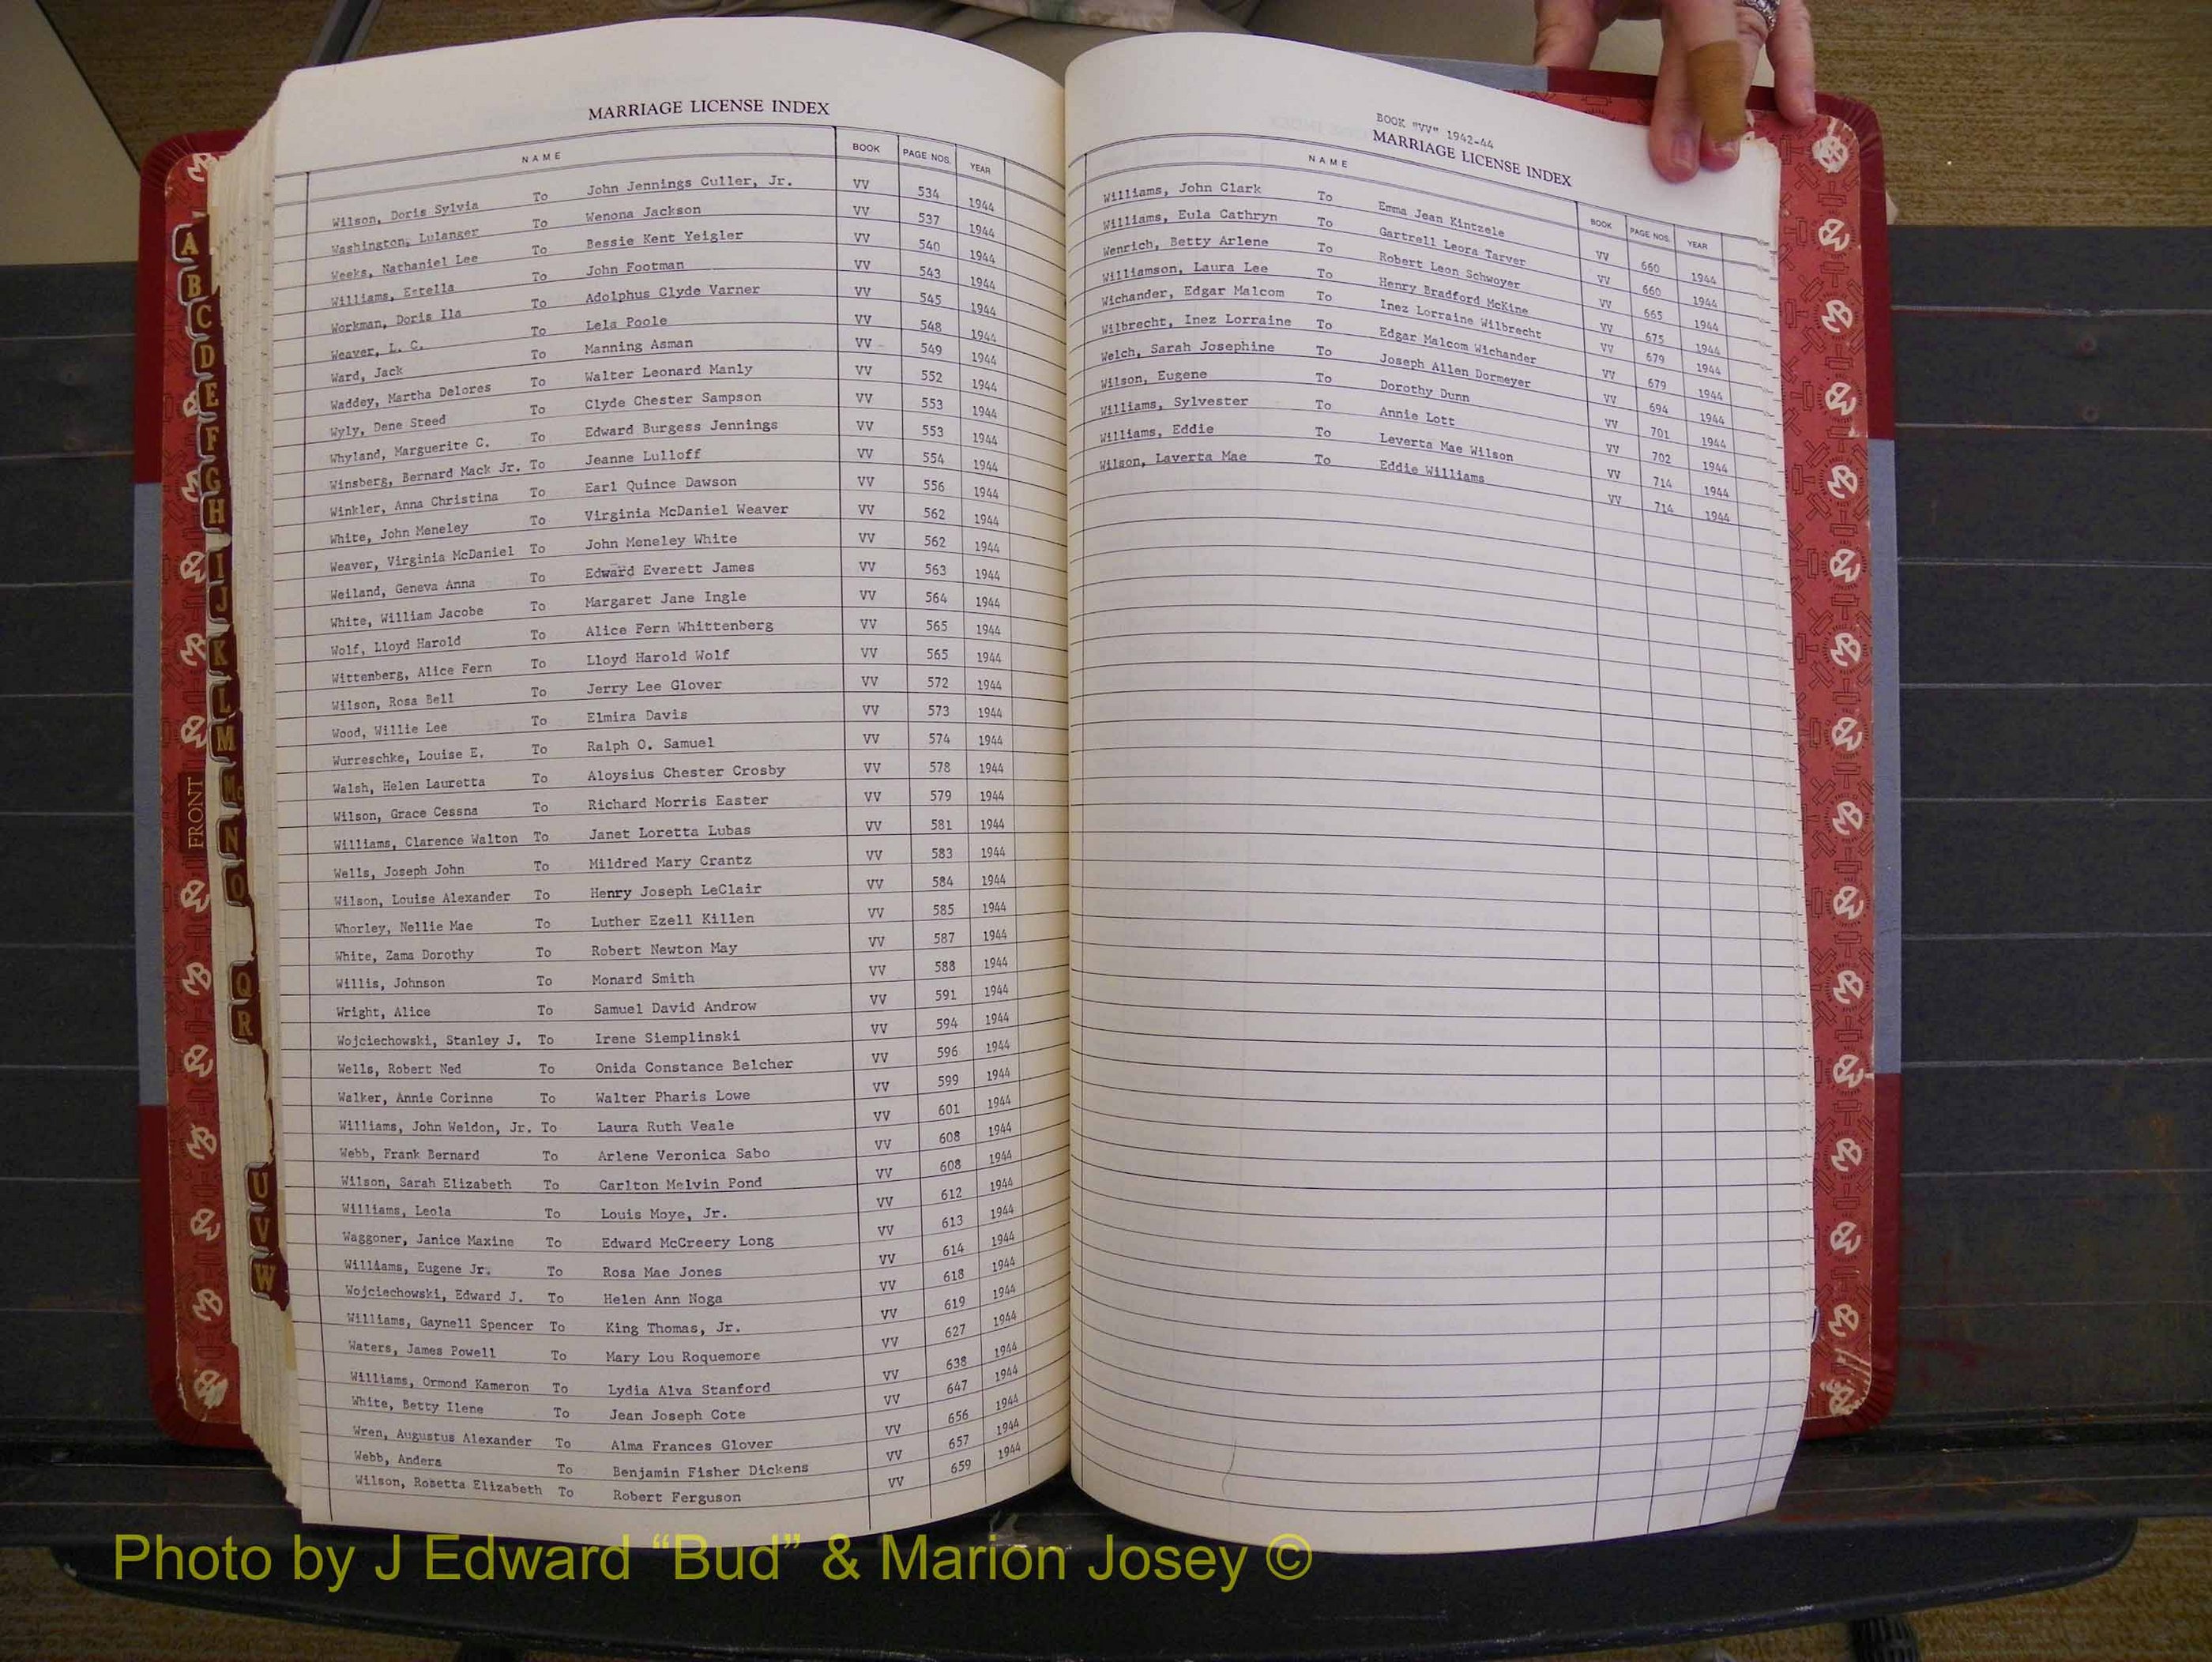 MARRIAGE LICENSE INDEX
NAME BOOK PAGE NOS. YEAR
Wilson, Doris Sylvia To John Jennings Culler, Jr. VV 534 1944
Washington, Lulanger To Wenona Jackson VV 537 1944
Weeks, Nathaniel Lee To Bessie Kent Yeigler VV 540 1944
Williams, Estella To John Footman VV 543 1944
Workman, Doris Ila To Adolphus Clyde Varner VV 545 1944
Weaver, L. C. To Lela Poole VV 548 1944
Ward, Jack To Manning Asman VV 549 1944
Waddey, Martha Delores To Walter Leonard Manly VV 552 1944
Wyly, Dene Steed To Clyde Chester Sampson VV 553 1944
Whyland, Marguerite C. To Edward Burgess Jennings VV 553 1944
Winsberg, Bernard Mack Jr. To Jeanne Lulloff VV 554 1944
Winkler, Anna Christina To Earl Quince Dawson VV 556 1944
White, John Meneley To Virginia McDaniel Weaver VV 562 1944
Weaver, Virginia McDaniel To John Meneley White VV 562 1944
Weiland, Geneva Anna To Edward Everett James VV 563 1944
White, William Jacobe To Margaret Jane Ingle VV 564 1944
Wolf, Lloyd Harold To Alice Fern Whittenberg VV 565 1944
Wittenberg, Alice Fern To Lloyd Harold Wolf VV 565 1944
Wilson, Rosa Bell To Jerry Lee Glover VV 572 1944
Wood, Willie Lee To Elmira Davis VV 573 1944
Wurreschke, Louise E. To Ralph O. Samuel VV 574 1944
Walsh, Helen Lauretta To Aloysius Chester Crosby VV 578 1944
Wilson, Grace Cessna To Richard Morris Easter VV 579 1944
Williams, Clarence Walton To Janet Loretta Lubas VV 581 1944
Wells, Joseph John To Mildred Mary Crantz VV 583 1944
Wilson, Louise Alexander To Henry Joseph LeClair VV 584 1944
Whorley, Nellie Mae To Luther Ezell Killen VV 585 1944
White, Zama Dorothy To Robert Newton May VV 587 1944
Willis, Johnson To Monard Smith VV 588 1944
Wright, Alice To Samuel David Androw VV 591 1944
Wojciechowski, Stanley J. To Irene Siemplinski VV 594 1944
Wells, Robert Ned To Onida Constance Belcher VV 596 1944
Walker, Annie Corinne To Walter Pharis Lowe VV 599 1944
Williams, John Weldon, Jr. To Laura Ruth Veale VV 601 1944
Webb, Frank Bernard To Arlene Veronica Sabo VV 608 1944
Wilson, Sarah Elizabeth To Carlton Melvin Pond VV 608 1944
Williams, Leola To Louis Moye, Jr. VV 612 1944
Waggoner, Janice Maxine To Edward McCreery Long VV 613 1944
Williams, Eugene Jr. To Rosa Mae Jones VV 614 1944
Wojciechowski, Edward J. To Helen Ann Noga VV 618 1944
Williams, Gaynell Spencer To King Thomas, Jr. VV 619 1944
Waters, James Powell To Mary Lou Roquemore VV 627 1944
Williams, Ormond Kameron To Lydia Alva Stanford VV 638 1944
White, Betty Ilene To Jean Joseph Cote VV 647 1944
Wren, Augustus Alexander To Alma Frances Glover VV 656 1944
Webb, Anders To Benjamin Fisher Dickens VV 657 1944
Wilson, Rosetta Elizabeth To Robert Ferguson VV 659 1944
BOOK "VV" 1942-44
MARRIAGE LICENSE INDEX
NAME BOOK PAGE NOS. YEAR
Williams, John Clark To Emma Jean Kintzele VV 660 1944
Williams, Eula Cathryn To Gartrell Leora Tarver VV 660 1944
Wenrich, Betty Arlene To Robert Leon Schwoyer VV 665 1944
Williamson, Laura Lee To Henry Bradford McKine VV 675 1944
Wichander, Edgar Malcom To Inez Lorraine Wilbrecht VV 679 1944
Wilbrecht, Inez Lorraine To Edgar Malcom Wichander VV 679 1944
Welch, Sarah Josephine To Joseph Allen Dormeyer VV 694 1944
Wilson, Eugene To Dorothy Dunn VV 701 1944
Williams, Sylvester To Annie Lott VV 702 1944
Williams, Eddie To Leverta Mae Wilson VV 714 1944
Wilson, Laverta Mae To Eddie Williams VV 714 1944
A
B
C
D
E
F
G
H
I
J
K
L
M
Mc
N
O
Q
R
U
V
W
FRONT
Photo by J Edward “Bud” & Marion Josey ©